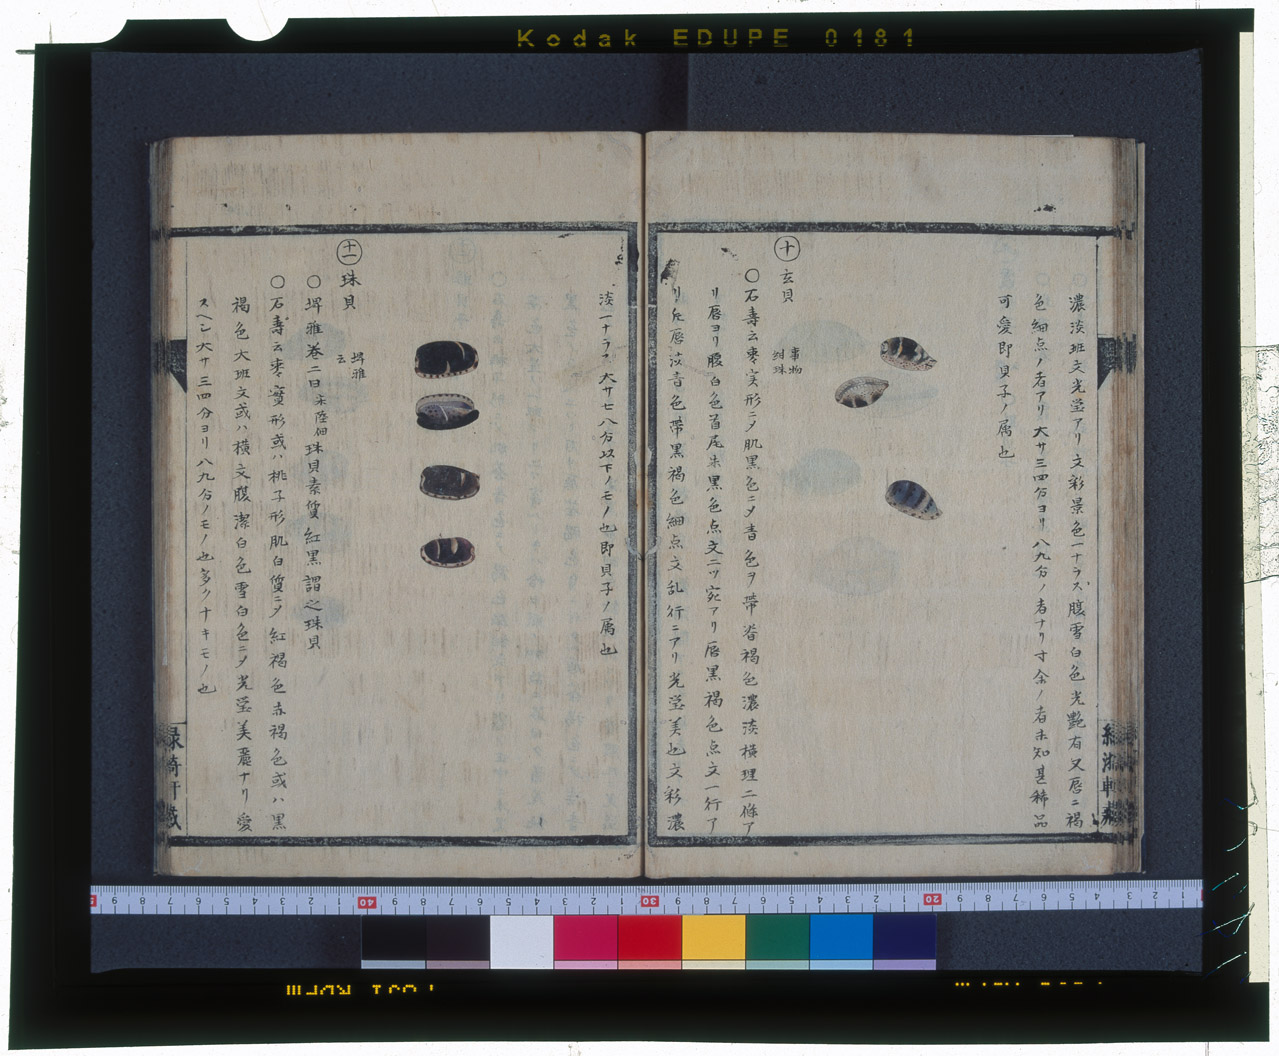 Kodak EDUPE 0181
濃淡班文光瑩アリ文彩景色一ナラス腹雪白色光艶有又唇ニ褐
色細点ノ者アリ大サ三四分ヨリ八九分ノ者ナリ寸余ノ者未知甚稀品
可愛即貝子ノ属也
十
玄貝
事物
紺珠
○石壽云棗実形ニメ肌黒色ニメ青色ヲ帯昝褐色濃淡横理二條ア
リ唇ヨリ腹白色首尾朱黒色点文二ツ宛アリ唇黒褐色点文一行ア
リ尤唇淡青色帯黒褐色細点文乱行ニアリ光瑩美也文彩濃
淡一ナラス大サ七八分以下ノモノ也即貝子ノ属也
十一
珠貝
埤雅
云
○埤雅巻二曰宋陸佃珠貝素質紅黒謂之珠貝
○石壽云棗實形或ハ桃子形肌白質ニメ紅褐色赤褐色或ハ黒
褐色大班文或ハ横文腹潔白色雪白色ニメ光瑩美麗ナリ愛
スヘシ大サ三四分ヨリ八九分ノモノ也多クナキモノ也
40
30
20